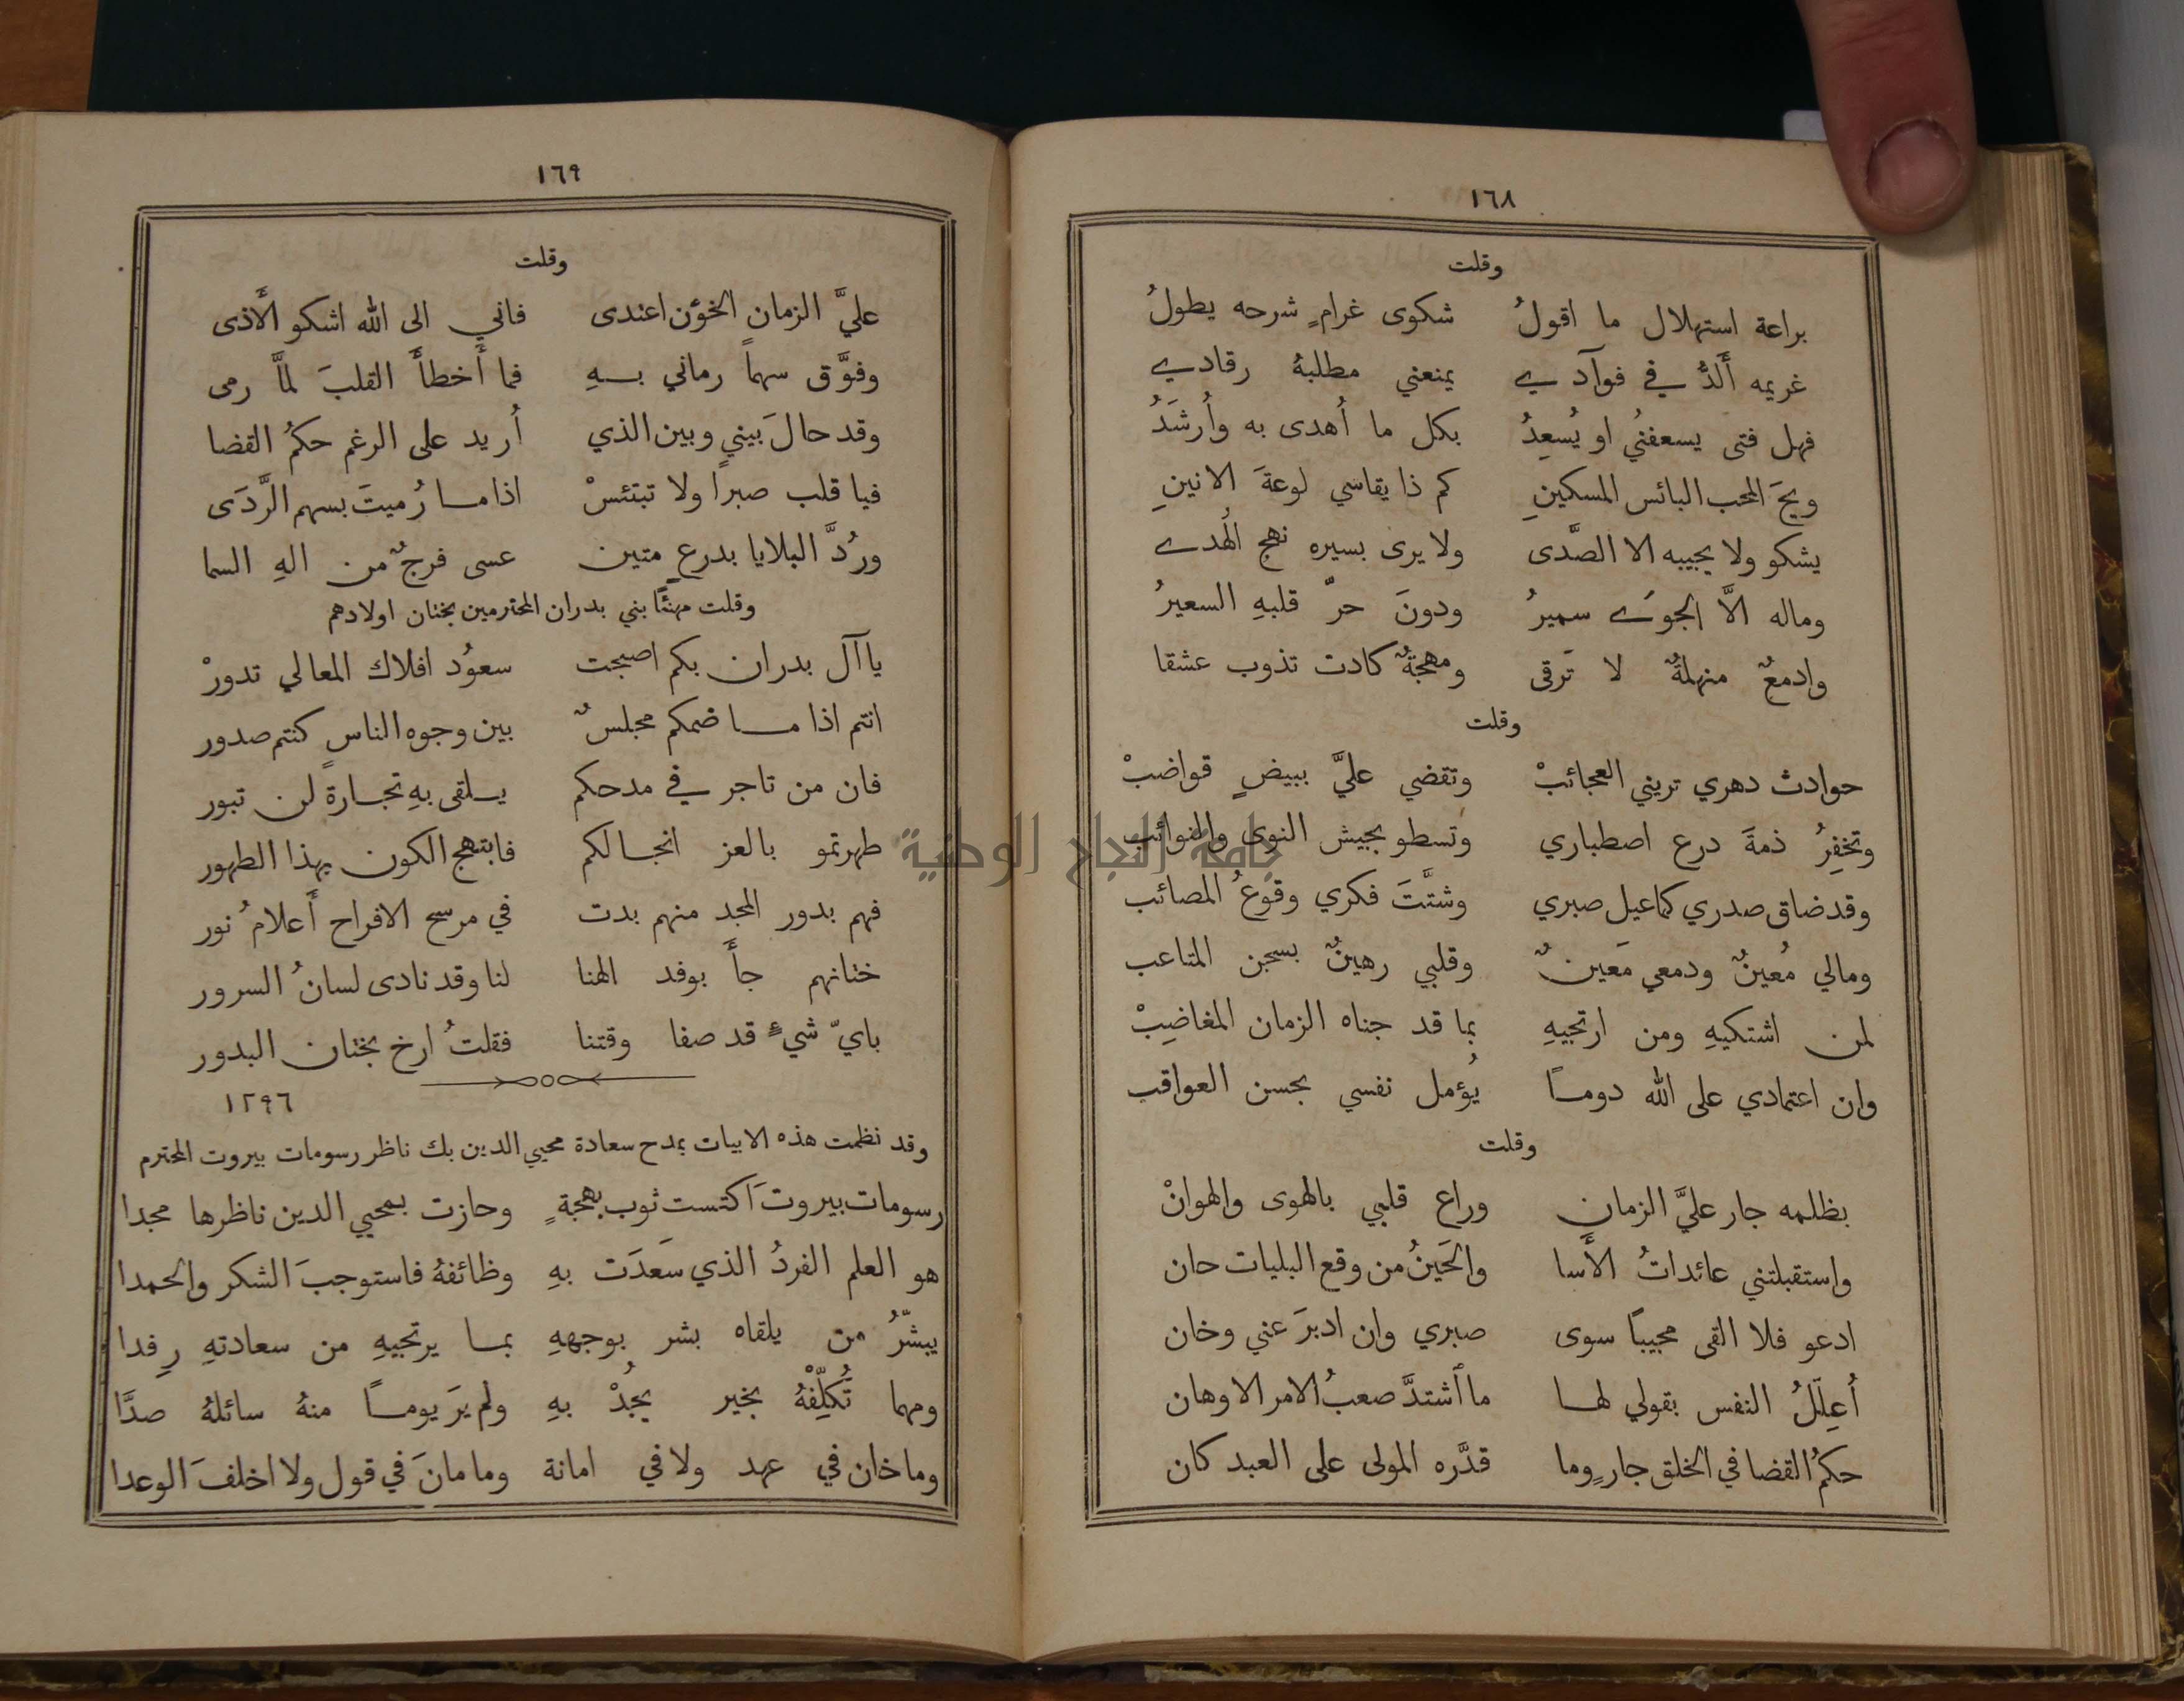 ١٦٨
وقلت
براعة استهلال ما اقولُ شكوى غرامٍ شرحه يطولُ
غريمه أَلدُّ في فوآدي يمنعني مطلبهُ رقادي
فهل فتى يسعفنُي او يُسعِدُ بكل ما اُهدى به وأُرشَدُ
ويحَ المحب البائس المسكينِ كم ذا يقاسي لوعةَ الانينِ
يشكو ولا يجيبه الا الصَّدى ولا يرى بسيره نهج الهُدى
وماله الَّا الجوَى سميرُ ودونَ حرّ قلبهِ السعيرُ
وادمعٌ منهلةٌ لا تَرقى ومهجةٌ كادت تذوب عشقا
وقلت
حوادث دهري تريني العجائبْ وتقضي عليَّ ببيضٍ قواضبْ
وتخفِرُ ذمةَ درع اصطباري وتسطو بجيش النوى والنوائب
وقد ضاق صدري كما عيل صبري وشتَّتَ فكري وقوعُ المصائب
ومالي مُعينٌ ودمعي مَعينٌ وقلبي رهينٌ بسجن المتاعب
لمن اشتكيهِ ومن ارتجيهِ بما قد جناه الزمان المغاضِبْ
وان اعتمادي على الله دوماً يُؤمل نفسي بحسن العواقب
وقلت
بظلمه جار عليَّ الزمان وراع قلبي بالهوى والهوانْ
واستقبلتني عائداتُ الأَسا والحَينُ من وقع البليات حان
ادعو فلا القى مجيباً سوى صبري وان ادبرَ عني وخان
أُعِلّلُ النفس بقولي لها ما أشتدَّ صعبُ الامر الا وهان
حكمُ القضا في الخلق جارٍ وما قدَّره المولى على العبد كان
١٦٩
وقلت
عليَّ الزمان الخؤن اعتدى فاني الى الله اشكو الأَذى
وفوَّق سهماً رماني بهِ فما أَخطأَ القلبَ لمَّا رمى
وقد حالَ بيني وبين الذي أُريد على الرغم حكمُ القضا
فيا قلب صبراً ولا تبتئسْ اذا ما رُميتَ بسهم الرَّدَى
ورُدَّ البلايا بدرعٍ متين عسى فرجٌ من الهِ السما
وقلت مهنئًا بني بدران المحترمين بختان اولادهم
يا آل بدران بكم اصبحت سعوُد افلاك المعالي تدورْ
انتم اذا ما ضمكم مجلسٌ بين وجوه الناسِ كنتم صدور
فان من تاجر في مدحكم يلقى بهِ تجارةً لن تبور
طهرتمو بالعز انجالكم فابتهج الكون بهذا الطهور
فهم بدور المجد منهم بدت في مرسح الافراح أَعلامُ نور
ختانهم جأَ بوفد الهنا لنا وقد نادى لسانُ السرور
بايّ شيءٍ قد صفا وقتنا فقلتُ ارخ بختان البدور
١٢٩٦
وقد نظمت هذه الابيات بمدح سعادة محيي الدين بك ناظر رسومات بيروت المحترم
رسومات بيروتَ اكتست ثوب بهجةٍ وحازت بمحيي الدين ناظرها مجدا
هو العلم الفردُ الذي سعَدَت بهِ وظائفهُ فاستوجبَ الشكر والحمدا
يبشّرُ من يلقاه بشر بوجههِ بما يرتجيهِ من سعادتهِ رِفدا
ومهما تُكلِّفْهُ بخير يجُدْ بهِ ولم يَر يوماً منهُ سائلهُ صدَّا
وما خان في عهد ولا في امانة وما مانَ في قول ولا اخلفَ الوعدا
جامعة النجاح الوطنية